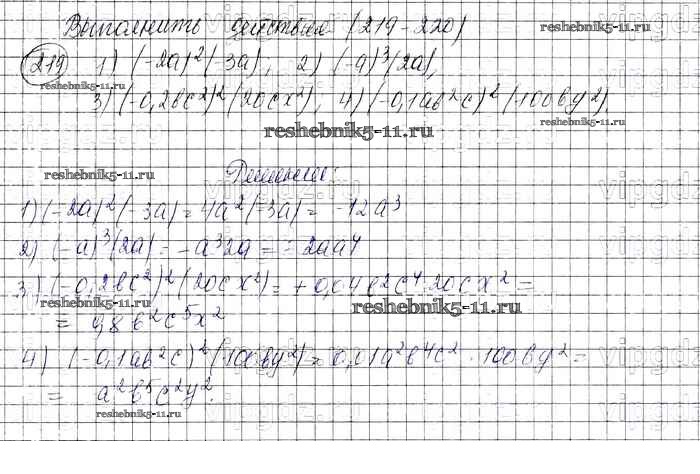 Выполнить действия (219-220)
reshebnik5-11.ru
219 1) (-2a)²(-3a); 2) (-a)³(2a),
reshebnik5-11.ru
3) (-0,2bc²)²(20cx²), 4) (-0,1ab²c)²(100by²),
reshebnik5-11.ru
reshebnik5-11.ru
reshebnik5-11.ru
Решение:
1) (-2a)²(-3a) = 4a²(-3a) = -12a³
2) (-a)³(2a) = -a³2a = -2aa⁴
3) (-0,2bc²)²(20cx²) = +0,04b²c⁴·20cx² =
reshebnik5-11.ru
reshebnik5-11.ru
= 0,8b²c⁵x²
4) (-0,1ab²c)²(100by²) = 0,01a²b⁴c²·100by² =
= a²b⁵c²y².
reshebnik5-11.ru